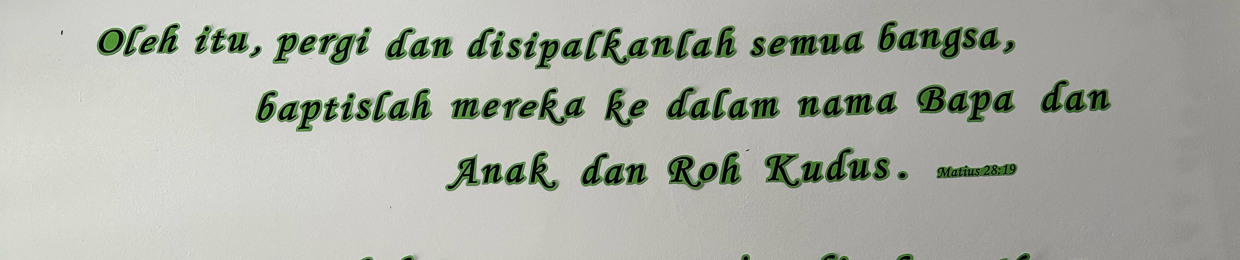 Oleh itu, pergi dan disipalkanlah semua bangsa,
baptislah mereka ke dalam nama Bapa dan
Anak dan Roh Kudus. Matius 28:19